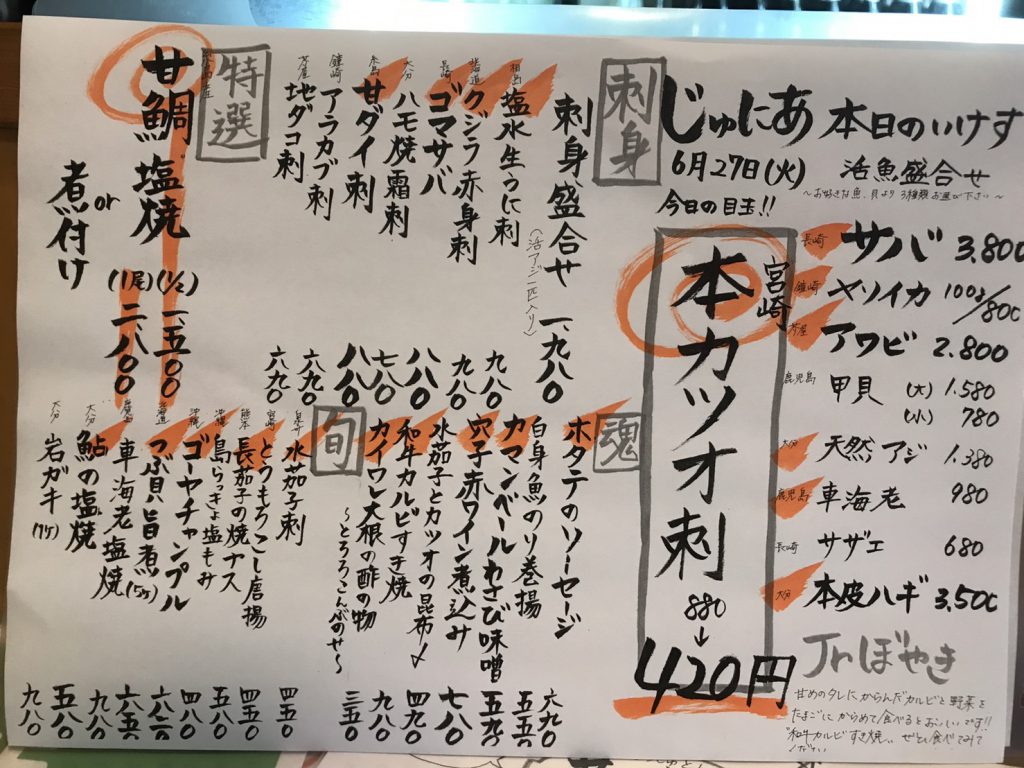 じゅにあ 本日のいけす
6月27日(火) 活魚盛合せ
～お好きな魚、貝より3種類お選び下さい～
今日の目玉!!
宮崎
本カツオ刺
880
↓
420円
長崎 サバ 3.800
鐘崎 ヤリイカ 100g/800
芦屋 アワビ 2.800
鹿児島 甲貝 (大) 1.580
(小) 780
大分 天然アジ 1.380
鹿児島 車海老 980
長崎 サザエ 680
大分 本皮ハギ 3.500
Jrぼやき
甘めのタレにからんだカルビと野菜を
たまごにからめて食べるとおいしいです!!
"和牛カルビすき焼"ぜひ食べてみて
ください
刺身
刺身盛合せ 一、九八〇
(活アジ一匹入り)
相島 塩水生うに刺 九八〇
北海道 クジラ赤身刺 九八〇
長崎 ゴマサバ 八八〇
大分 ハモ焼霜刺 七八〇
甘ダイ刺 八八〇
鐘崎 アラカブ刺 六九〇
芦屋 地ダコ刺 六九〇
特選
甘鯛塩焼 (1/2) 一、五〇〇
or (1尾) 二、八〇〇
煮付け
魂
ホタテのソーセージ 六九〇
白身魚のり巻揚 五五〇
カマンベールわさび味噌 五九〇
穴子赤ワイン煮込み 七八〇
水茄子とカツオの昆布〆 四九〇
和牛カルビすき焼 九八〇
カイワレ大根の酢の物 三五〇
～とろろこんぶのせ～
旬
泉州 水茄子刺 四五〇
宮崎 とうもろこし唐揚 四五〇
熊本 長茄子の焼ナス 五八〇
沖縄 島らっきょ塩もみ 四八〇
沖縄 ゴーヤチャンプル 六八〇
北海道 つぶ貝旨煮(5ケ) 六五〇
車海老塩焼 九八〇
大分 鮎の塩焼 五八〇
大分 岩ガキ(1ケ) 九八〇